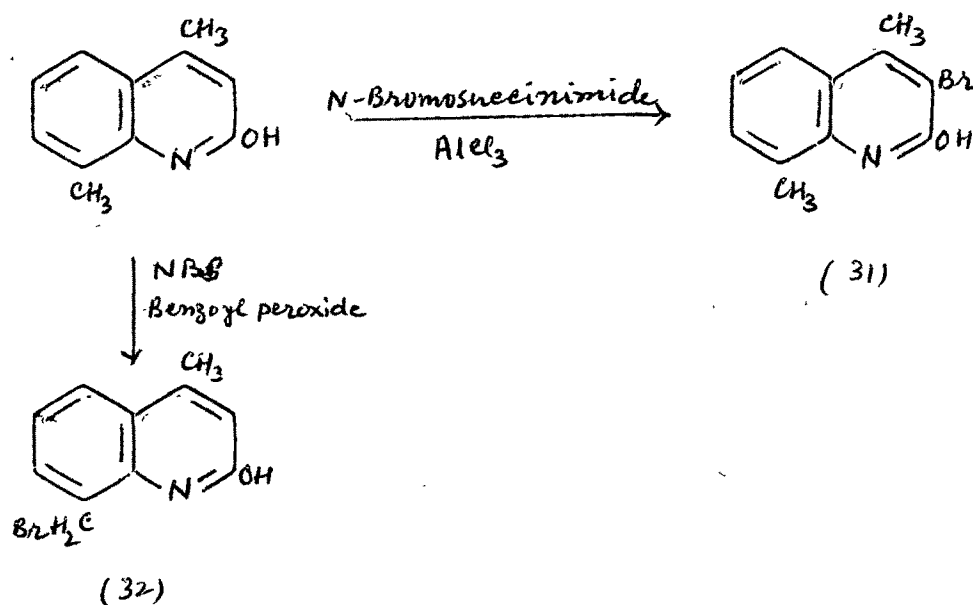 CH3
N
OH
CH3
N-Bromosuccinimide
AlCl3
CH3
Br
N
OH
CH3
(31)
NBS
Benzoyl peroxide
CH3
N
OH
BrH2C
(32)